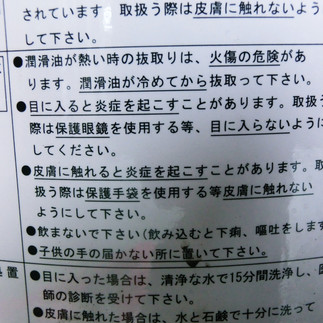 されています。取扱う際は皮膚に触れないよう
して下さい。
●潤滑油が熱い時の抜取りは、火傷の危険があ
ります。潤滑油が冷めてから抜取って下さい。
●目に入ると炎症を起こすことがあります。取扱
際は保護眼鏡を使用する等、目に入らないよう
にして下さい。
●皮膚に触れると炎症を起こすことがあります。
扱う際は保護手袋を使用する等皮膚に触れない
ようにして下さい。
●飲まないで下さい(飲み込むと下痢、嘔吐をしま
●子供の手の届かない所に置いて下さい。
処置
●目に入った場合は、清浄な水で15分間洗浄し、医
師の診断を受けて下さい。
●皮膚に触れた場合は、水と石鹸で十分に洗って